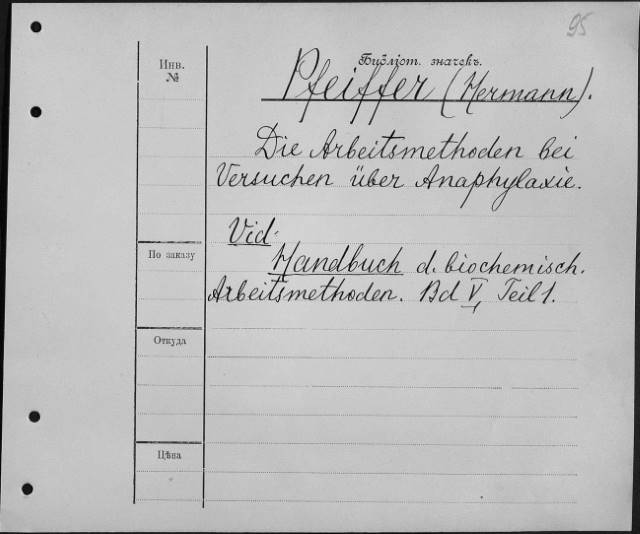 95
Инв.
№
Библіот. значекъ.
Pfeiffer (Hermann).
Die Arbeitsmethoden bei
Versuchen über Anaphylaxie.
Vid.
По заказу
Handbuch d. biochemisch.
Arbeitsmethoden. Bd V, Teil 1.
Откуда
Цѣна